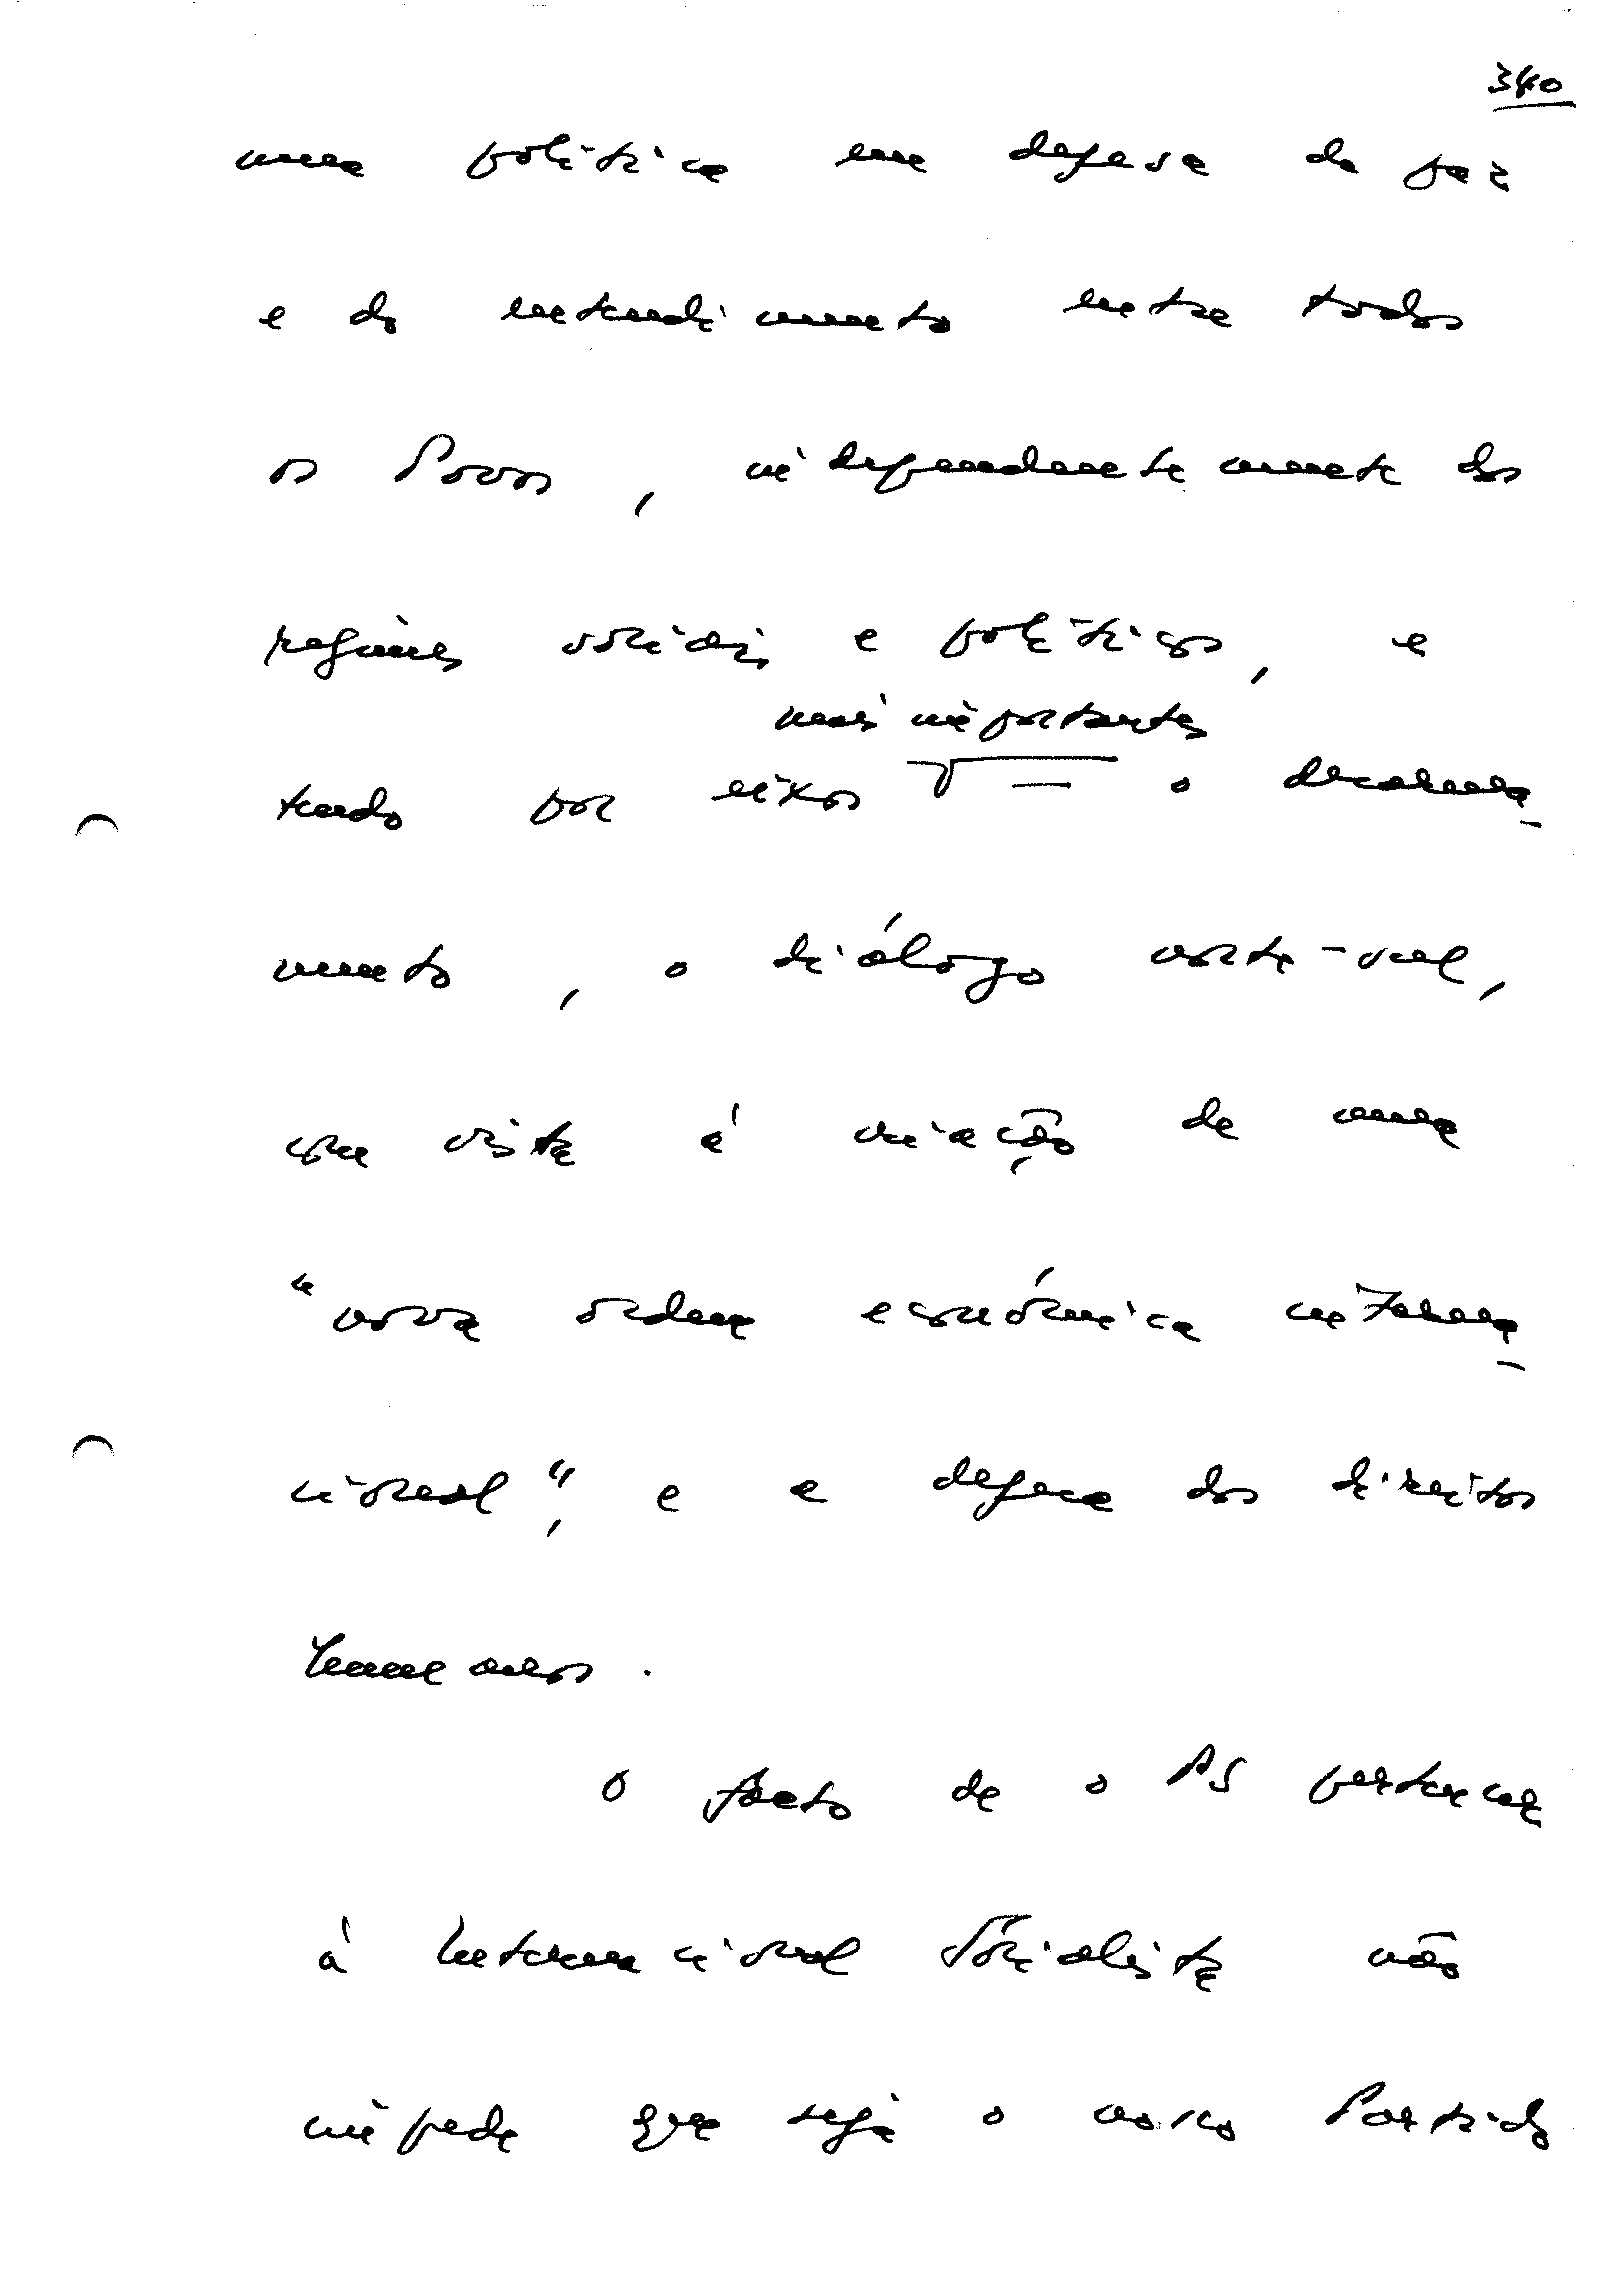 340
uma política em defesa da paz
e do entendimento entre todos
os Povos, independentemente dos
regimes sociais e políticos, e
mais importantes
tendo por eixos — o desarma-
mento, o diálogo norte-sul,
com vista à criação de uma
"nova ordem económica interna-
cional", e a defesa dos direitos
humanos.
O facto de o PS pertencer
à Internacional Socialista não
impede que seja o nosso Partido